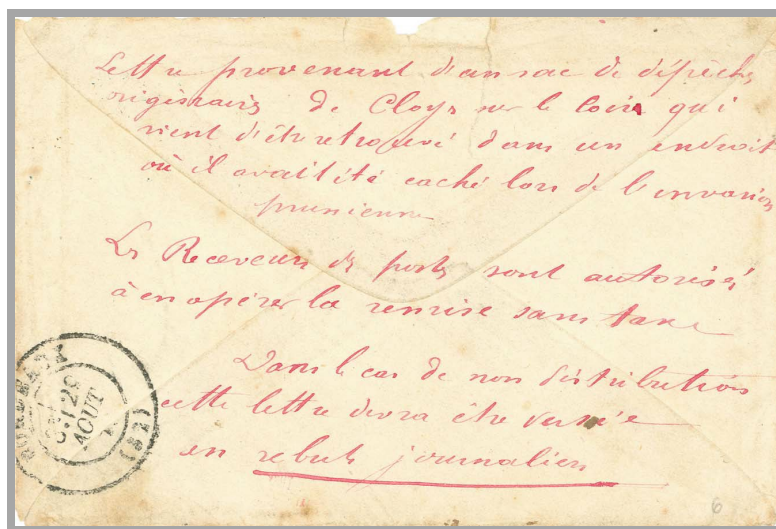 Lettre provenant d'un sac de dépêches
originaire de Cloys sur le Loire qui
vient d'être retrouvé dans un endroit
où il avait été caché lors de l'invasion
prussienne
Les Receveurs de postes sont autorisés
à en opérer la remise sans taxe
Dans le cas de non distribution
cette lettre devra être versée
en rebuts journaliers
BORDEAUX
29
AOUT
(32)
6